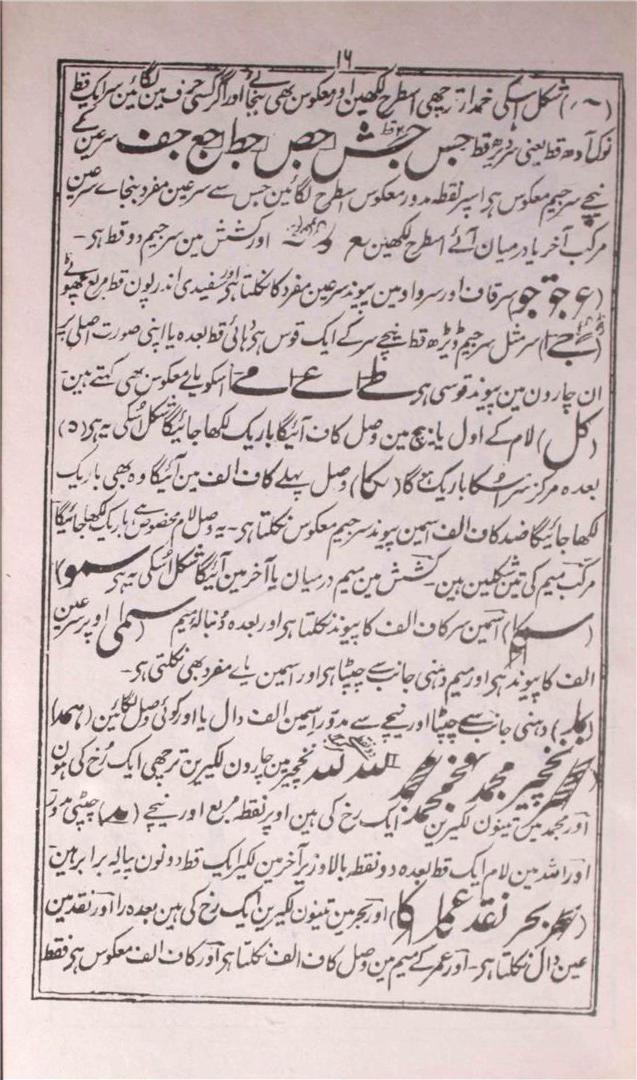 ۱۶
شکل اسکی خمدار ترچھی اسطرح لکھین اور معکوس بھی بنجائے اور اگر کسی حرف مین لگائین سر ایک قط
نوک آدھ قط یعنی سر ڈیڑھ قط جس جش جص جط جع جف سر عین کے
نیچے سر جیم معکوس ہی اسپر نقطہ مدور معکوس اسطرح لگائین جس سے سر عین مفرد بنجاے سر عین
مرکب آخر یا درمیان آئے اسطرح لکھین اور کشش مین سر جیم دو قط ہی۔
(ء جو جو) سر قاف اور سر واو مین پیوند سر عین مفرد کا نکلتا ہی اور سفیدی اندر پون قط مربع چھوٹے
سر مثل سر جیم ڈیڑھ قط نیچے سر کے ایک قوس ہی ڈہائی قط بعدہ یا اپنی صورت اصلی پر
ان چارون مین پیوند قوسی ہی اسکو یاے معکوس بھی کہتے ہین۔
(کل) لام کے اول یا بیچ مین وصل کاف آئیگا باریک لکھا جائیگا شکل اُسکی یہ ہی (ہ)
بعدہ مرکز سر اسکا باریک ہے گا (کا) وصل پہلے کاف الف مین آئیگا وہ بھی باریک
لکھا جائیگا ضد کاف الف اسمین پیوند سر جیم معکوس نکلتا ہی۔ یہ وصل لام مخصوص ہے باریک لکھا جائیگا
مرکب میم کی تین شکلین ہین۔ کشش مین میم درمیان یا آخر مین آئیگا شکل اُسکی یہ ہی (سمو)
(سمکا) اسمین سر کاف الف کا پیوند نکلتا ہی اور بعدہ دنبالہ میم (سمی) اوپر سر عین
الف کا پیوند ہی اور میم دہنی جانب سے چپٹا ہی اور اسمین یاے مفرد بھی نکلتی ہی۔
دہنی جانب سے چپٹا اور نیچے سے مدور اسمین الف دال یا اور کوئی وصل لگائین (ہمدا)
نخچیر محمد نخچیر محمد اللہ للہ نخچیر مین چارون لکیرین ترچھی ایک رُخ کی ہون
اور محمد مین تینون لکیرین ایک رخ کی ہین اوپر نقطہ مربع اور نیچے (مد) چپٹی مدور
اور اللہ مین لام ایک قط بعدہ دو نقطہ بالا و زیر آخر مین لکیر ایک قط دونون پیالہ برابر ہین
بحر نقد عمل کا) اور بحر مین تینون لکیرین ایک رُخ کی ہین بعدہ را اور نقد مین
عین دال نکلتا ہی۔ اور عمر کے میم مین وصل کاف الف نکلتا ہی اور کاف الف معکوس ہی فقط